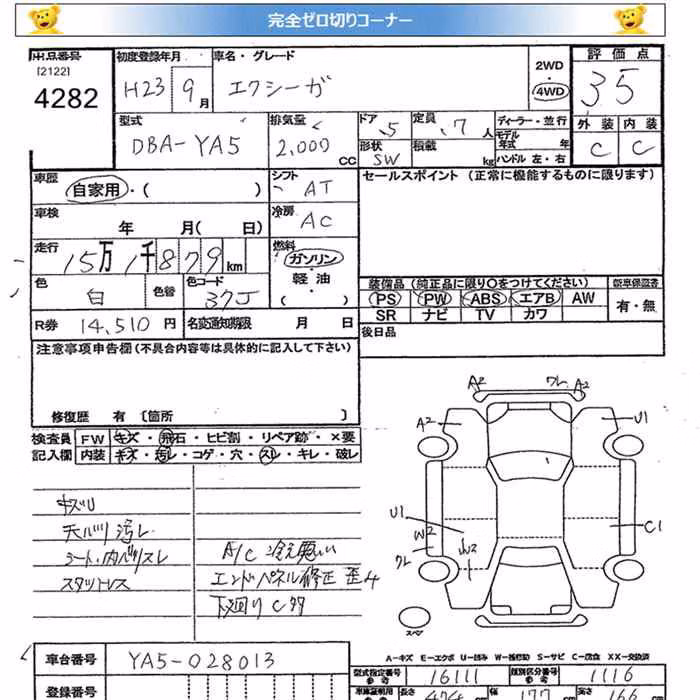 完全ゼロ切りコーナー
出品番号 初度登録年月 車名・グレード 2WD 評価点
[2122] 4WD
4282 H23 9月 エクシーガ 35
型式 排気量 ドア 定員 ディーラー・並行 外装 内装
DBA-YA5 2,000 CC 5 7人 モデル年式 年 C C
形状 SW 積載 kg ハンドル 左・右
車歴 シフト セールスポイント (正常に機能するものに限ります)
自家用・( ) AT
車検 冷房
年 月( 日) AC
走行 燃料
15万1千879km ガソリン
色 色替 色コード 軽油 装備品 (純正品に限り○をつけてください) 新車保証書
白 37J ( ) PS PW ABS エアB AW 有・無
SR ナビ TV カワ
R券 14,510円 名変通知期限 月 日 後日品
注意事項申告欄 (不具合内容等は具体的に記入して下さい)
修復歴 有 〔箇所 〕
検査員 FW キズ・飛石・ヒビ割・リペア跡・×要
記入欄 内装 キズ・汚レ・コゲ・穴・スレ・キレ・破レ
キズU
天バリ汚レ
シート・内バリスレ A/C 冷え悪い
スタットレス エンドパネル修正 歪み
下廻りC多
A2 ワレ A2
A2 U1
U1 C1
W2 W2
ワレ
スペア
A-キズ E-エクボ U-凹み W-補修跡 S-サビ C-腐食 XX-交換済
車台番号 YA5-028013
型式指定番号 参考 16111 類別区分番号 参考 1116
登録番号
車庫証明用 参考 長さ 474cm 幅 177cm 高さ 166cm